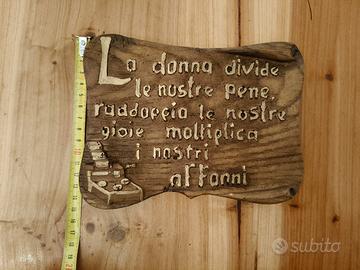 La donna divide
le nostre pene,
raddoppia le nostre
gioie moltiplica
i nostri
affanni
subito